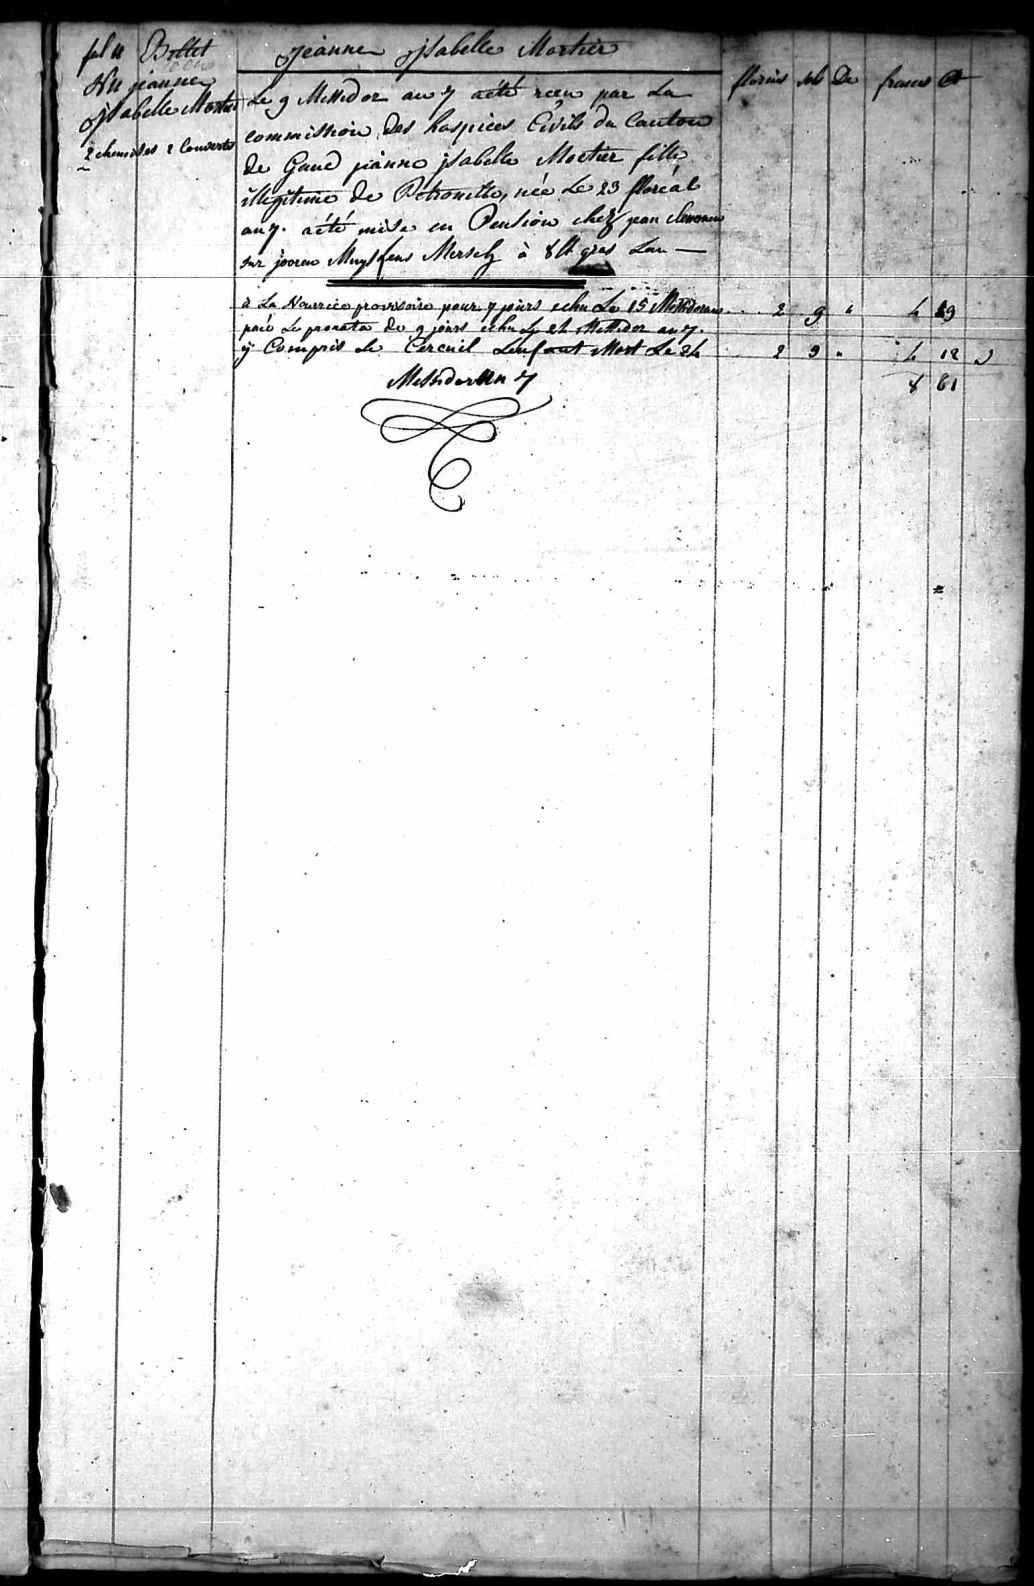 fol 11 Billet
Nu jeanne
jsabelle Mortier
2 chemises 2 Couverts
Jeanne Jsabelle Mortier
florins sols De francs Ct
Le 9 Messidor an 7 aété recu par La
commission des hospices Civils du Canton
de Gand jeanne jsabelle Mortier fille
illegitime de Petronille, née Le 23 floréal
an 7. aété mise en Pension chez jean
sur jooren Muysfens Mersch à 8 lt gros Lan —
à La Nourrice provisoire pour 7 jours echu Le 15 Messidor an 2 9 " 4 49
paié Le prorata de 9 jours echu Le 24 Messidor an 7.
ÿ Compris Le Cercueil Lenfant Mort Le 24 2 9 " 4 12
Messidor an 7 8 61